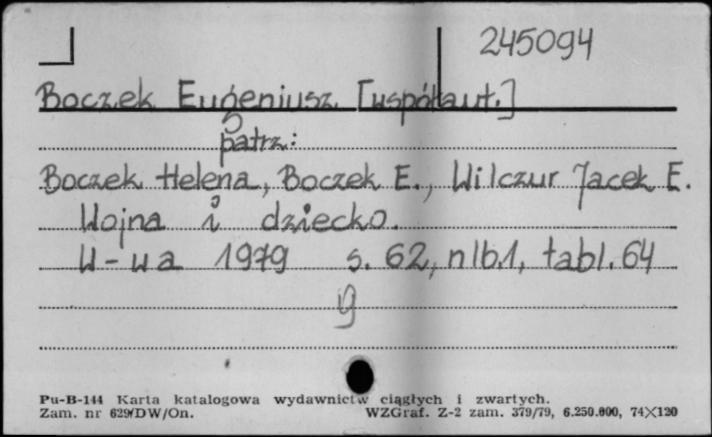 245094
Boczek Eugeniusz. [współaut.]
patrz:
Boczek Helena, Boczek E., Wilczur Jacek E.
Wojna i dziecko.
W-wa 1979 s. 62, nlb.1, tabl. 64
Pu-B-144 Karta katalogowa wydawnictw ciągłych i zwartych.
Zam. nr 629/DW/On. WZGraf. Z-2 zam. 379/79, 6.250.000, 74×120